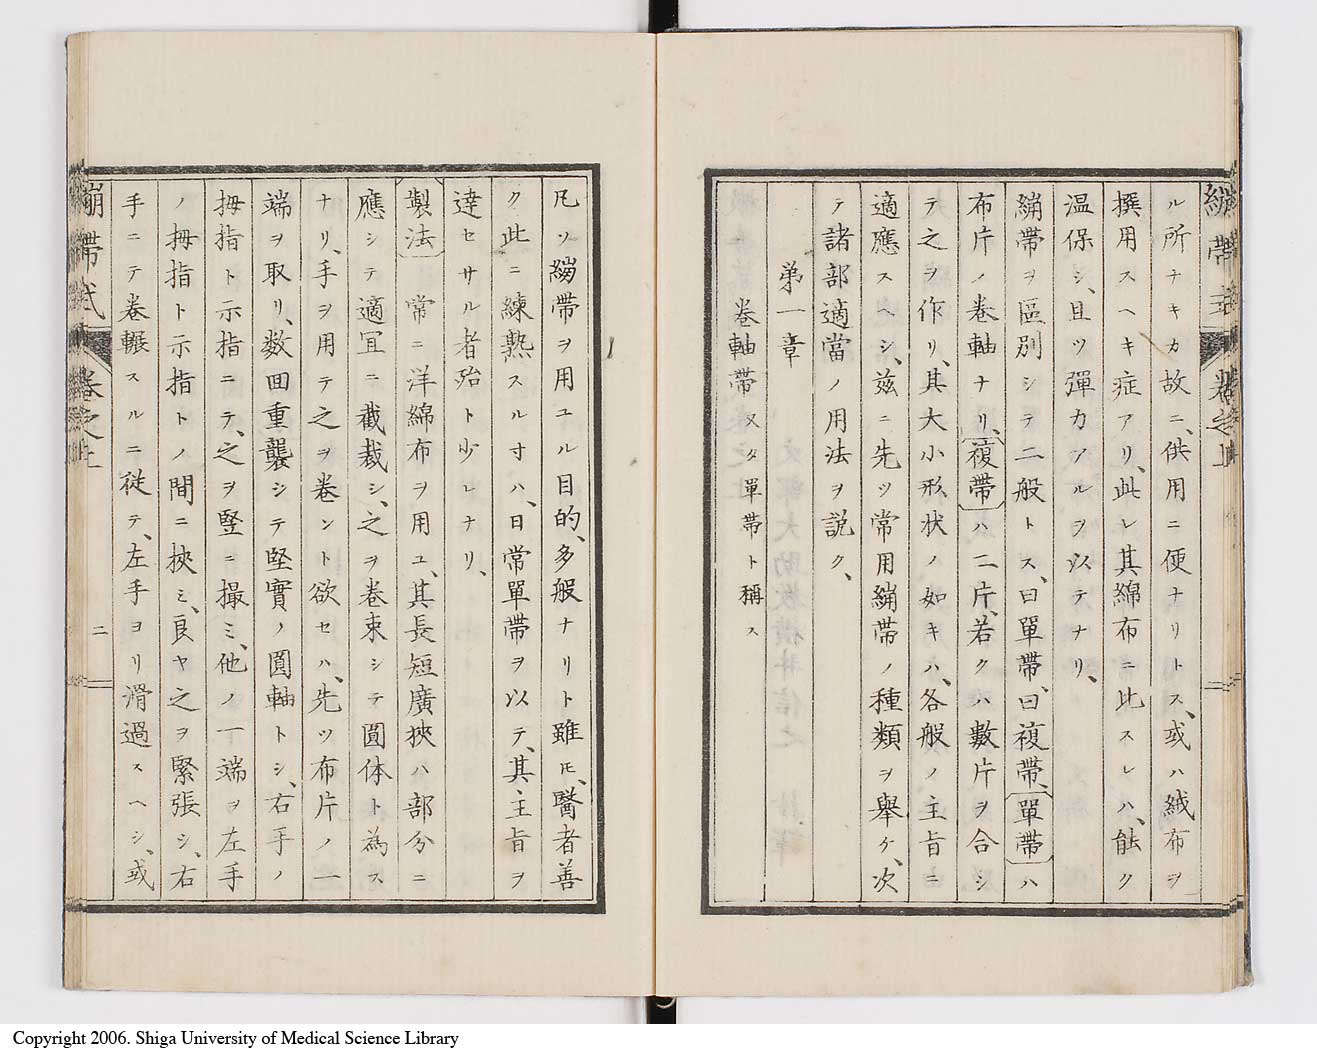 ル所ナキカ故ニ、供用ニ便ナリトス、或ハ絨布ヲ
撰用スヘキ症アリ、此レ其綿布ニ比スレハ、能ク
温保シ、且ツ彈力アルヲ以テナリ、
繃帶ヲ區別シテ二般トス、曰單帶、曰複帶、〔單帶〕ハ
布片ノ卷軸ナリ、〔複帶〕ハ二片、若クハ數片ヲ合シ
テ之ヲ作リ、其大小形状ノ如キハ、各般ノ主旨ニ
適應スヘシ、玆ニ先ツ常用繃帶ノ種類ヲ舉ケ、次
テ諸部適當ノ用法ヲ説ク、
第一章
卷軸帶又タ單帶ト稱ス
凡ソ繃帶ヲ用ユル目的、多般ナリト雖𪜈、醫者善
ク此ニ練熟スル寸ハ、日常單帶ヲ以テ、其主旨ヲ
達セサル者殆ト少レナリ、
〔製法〕常ニ洋綿布ヲ用ユ、其長短廣狹ハ部分ニ
應シテ適宜ニ截裁シ、之ヲ卷束シテ圓体ト為ス
ナリ、手ヲ用テ之ヲ卷ント欲セハ、先ツ布片ノ一
端ヲ取リ、数回重襲シテ堅實ノ圓軸トシ、右手ノ
拇指ト示指ニテ、之ヲ竪ニ撮ミ、他ノ一端ヲ左手
ノ拇指ト示指トノ間ニ挾ミ、良ヤ之ヲ緊張シ、右
手ニテ卷輾スルニ従テ、左手ヨリ滑過スヘシ、或
繃帶式
卷之上
二
Copyright 2006. Shiga University of Medical Science Library